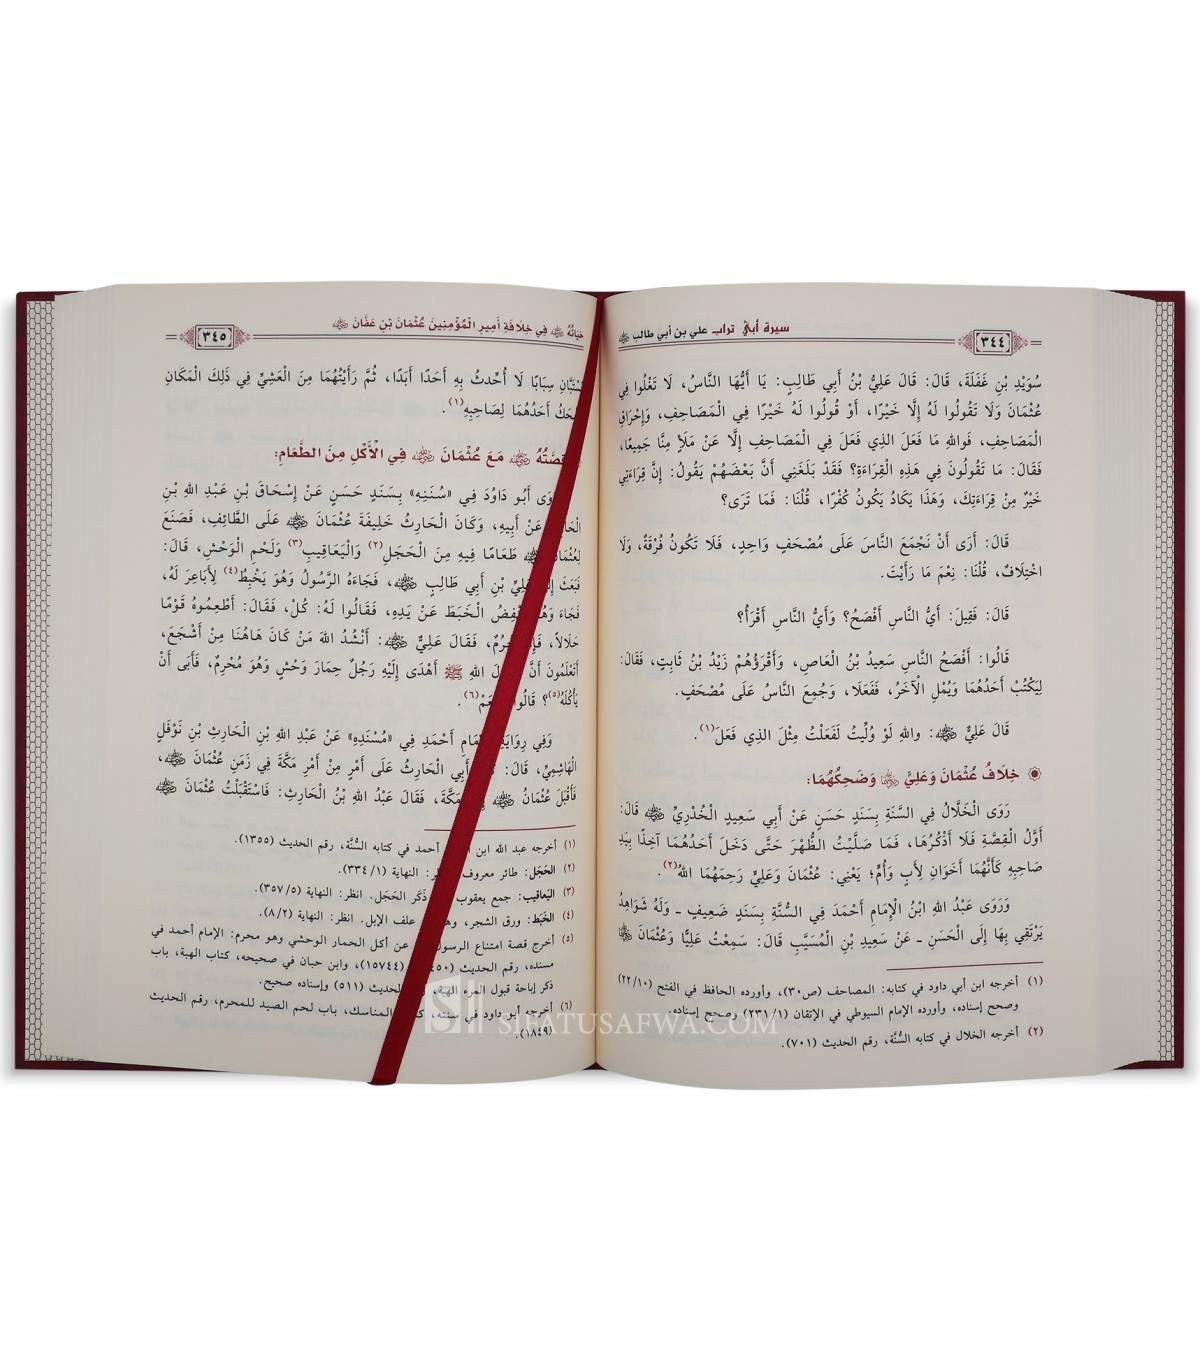 سيرة أبي تراب علي بن أبي طالب ﵁
٣٤٤
سُوَيْدِ بْنِ غَفَلَةَ، قَالَ: قَالَ عَلِيُّ بْنُ أَبِي طَالِبٍ: يَا أَيُّهَا النَّاسُ، لَا تَغْلُوا فِي
عُثْمَانَ وَلَا تَقُولُوا لَهُ إِلَّا خَيْرًا، أَوْ قُولُوا لَهُ خَيْرًا فِي الْمَصَاحِفِ، وَإِحْرَاقِ
الْمَصَاحِفِ، فَوَاللهِ مَا فَعَلَ الذِي فَعَلَ فِي الْمَصَاحِفِ إِلَّا عَنْ مَلَأٍ مِنَّا جَمِيعًا،
فَقَالَ: مَا تَقُولُونَ فِي هَذِهِ الْقِرَاءَةِ؟ فَقَدْ بَلَغَنِي أَنَّ بَعْضَهُمْ يَقُولُ: إِنَّ قِرَاءَتِي
خَيْرٌ مِنْ قِرَاءَتِكَ، وَهَذَا يَكَادُ يَكُونُ كُفْرًا، قُلْنَا: فَمَا تَرَى؟
قَالَ: أَرَى أَنْ نَجْمَعَ النَّاسَ عَلَى مُصْحَفٍ وَاحِدٍ، فَلَا تَكُونُ فُرْقَةٌ، وَلَا
اخْتِلَافٌ، قُلْنَا: نِعْمَ مَا رَأَيْتَ.
قَالَ: فَقِيلَ: أَيُّ النَّاسِ أَفْصَحُ؟ وَأَيُّ النَّاسِ أَقْرَأُ؟
قَالُوا: أَفْصَحُ النَّاسِ سَعِيدُ بْنُ الْعَاصِ، وَأَقْرَؤُهُمْ زَيْدُ بْنُ ثَابِتٍ، فَقَالَ:
لِيَكْتُبْ أَحَدُهُمَا وَيُمْلِ الْآخَرُ، فَفَعَلَا، وَجُمِعَ النَّاسُ عَلَى مُصْحَفٍ.
قَالَ عَلِيٌّ ﵁: وَاللهِ لَوْ وُلِّيتُ لَفَعَلْتُ مِثْلَ الذِي فَعَلَ(١).
خِلَافُ عُثْمَانَ وَعَلِيٍّ ﵄ وَضَحِكُهُمَا:
رَوَى الْخَلَّالُ فِي السُّنَّةِ بِسَنَدٍ حَسَنٍ عَنْ أَبِي سَعِيدٍ الْخُدْرِيِّ ﵁ قَالَ:
أَوَّلُ الْقِصَّةِ فَلَا أَذْكُرُهَا، فَمَا صَلَّيْتُ الظُّهْرَ حَتَّى دَخَلَ أَحَدُهُمَا آخِذًا بِيَدِ
صَاحِبِهِ كَأَنَّهُمَا أَخَوَانِ لِأَبٍ وَأُمٍّ؛ يَعْنِي: عُثْمَانَ وَعَلِيٍّ رَحِمَهُمَا اللهُ(٢).
وَرَوَى عَبْدُ اللهِ ابْنُ الْإِمَامِ أَحْمَدَ فِي السُّنَّةِ بِسَنَدٍ ضَعِيفٍ ـ وَلَهُ شَوَاهِدُ
يَرْتَقِي بِهَا إِلَى الْحَسَنِ ـ عَنْ سَعِيدِ بْنِ الْمُسَيَّبِ قَالَ: سَمِعْتُ عَلِيًّا وَعُثْمَانَ ﵄
(١) أخرجه ابن أبي داود في كتابه: المصاحف (ص٣٠)، وأورده الحافظ في الفتح (٢٢/١٠)
وصحح إسناده، وأورده الإمام السيوطي في الإتقان (٢٣١/١) وصحح إسناده.
(٢) أخرجه الخلال في كتابه السُّنَّة، رقم الحديث (٧٠١).
حَيَاتُهُ ﵁ فِي خِلَافَةِ أَمِيرِ الْمُؤْمِنِينَ عُثْمَانَ بْنِ عَفَّانَ ﵁
٣٤٥
يَسْتَبَّانِ سِبَابًا لَا أُحَدِّثُ بِهِ أَحَدًا أَبَدًا، ثُمَّ رَأَيْتُهُمَا مِنَ الْعَشِيِّ فِي ذَلِكَ الْمَكَانِ
أَحَدُهُمَا لِصَاحِبِهِ(١).
قِصَّتُهُ ﵁ مَعَ عُثْمَانَ ﵁ فِي الْأَكْلِ مِنَ الطَّعَامِ:
أَبُو دَاوُدَ فِي «سُنَنِهِ» بِسَنَدٍ حَسَنٍ عَنْ إِسْحَاقَ بْنِ عَبْدِ اللهِ بْنِ
عَنْ أَبِيهِ، وَكَانَ الْحَارِثُ خَلِيفَةَ عُثْمَانَ ﵁ عَلَى الطَّائِفِ، فَصَنَعَ
لِعُثْمَانَ ﵁ طَعَامًا فِيهِ مِنَ الْحَجَلِ(٢) وَالْيَعَاقِيبِ(٣) وَلَحْمِ الْوَحْشِ، قَالَ:
فَبَعَثَ عَلِيِّ بْنِ أَبِي طَالِبٍ ﵁، فَجَاءَهُ الرَّسُولُ وَهُوَ يَخْبِطُ(٤) لِأَبَاعِرَ لَهُ،
فَجَاءَ الْخَبَطَ عَنْ يَدِهِ، فَقَالُوا لَهُ: كُلْ، فَقَالَ: أَطْعِمُوهُ قَوْمًا
حَلَالًا، فَقَالَ عَلِيٌّ ﵁: أَنْشُدُ اللهَ مَنْ كَانَ هَاهُنَا مِنْ أَشْجَعَ،
أَتَعْلَمُونَ أَنَّ اللهِ ﷺ أَهْدَى إِلَيْهِ رَجُلٌ حِمَارَ وَحْشٍ وَهُوَ مُحْرِمٌ، فَأَبَى أَنْ
يَأْكُلَهُ(٥)؟ قَالُوا: نَعَمْ(٦).
وَفِي رِوَايَةِ أَحْمَدَ فِي «مُسْنَدِهِ» عَنْ عَبْدِ اللهِ بْنِ الْحَارِثِ بْنِ نَوْفَلٍ
الْهَاشِمِيِّ، قَالَ: أَبِي الْحَارِثُ عَلَى أَمْرٍ مِنْ أَمْرِ مَكَّةَ فِي زَمَنِ عُثْمَانَ ﵁،
فَأَقْبَلَ عُثْمَانُ ﵁ مَكَّةَ، فَقَالَ عَبْدُ اللهِ بْنُ الْحَارِثِ: فَاسْتَقْبَلْتُ عُثْمَانَ ﵁
(١) أخرجه عبد الله ابن أحمد في كتابه السُّنَّة، رقم الحديث (١٣٥٥).
(٢) الحَجَل: طائر معروف. النهاية (٣٣٤/١).
(٣) اليَعاقيب: جمع يعقوب ذَكَر الحَجَل. انظر: النهاية (٣٥٧/٥).
(٤) الخَبَط: ورق الشجر، علف الإبل. انظر: النهاية (٨/٢).
(٥) أخرج قصة امتناع الرسول عن أكل الحمار الوحشي وهو محرم: الإمام أحمد في
مسنده، رقم الحديث (١٥٧٤٤)، وابن حبان في صحيحه، كتاب الهبة، باب
ذكر إباحة قبول المرء الهبة، الحديث (٥١١) وإسناده صحيح.
(٦) أخرجه أبو داود في سننه، المناسك، باب لحم الصيد للمحرم، رقم الحديث
(١٨٤٩).
SIFATUSAFWA.COM